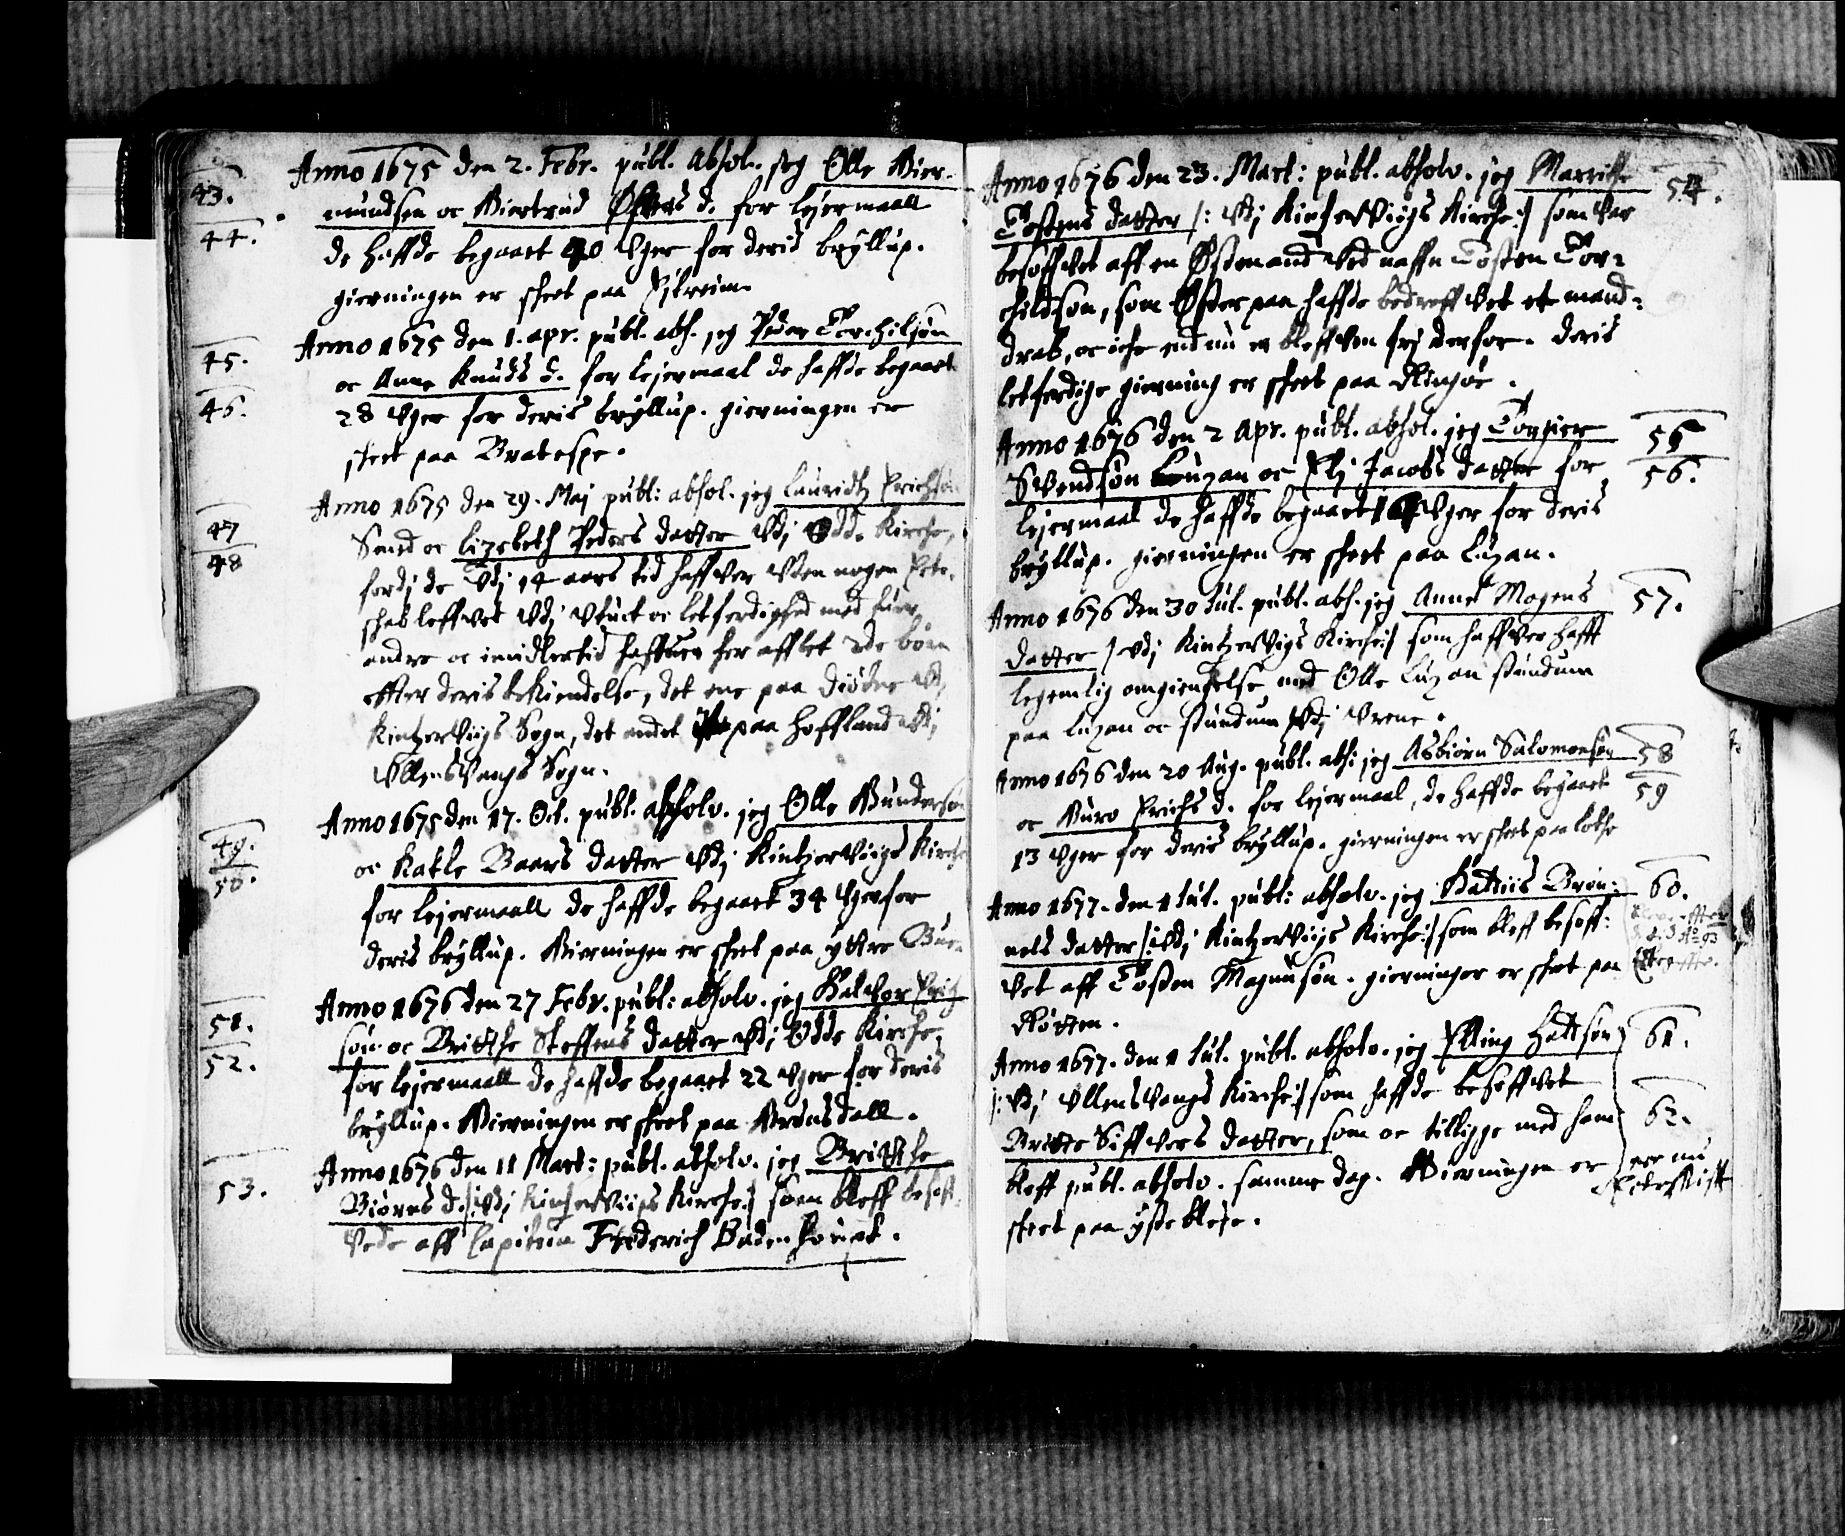 43.
44.
Anno 1675 den 2. Febr. publ. absol. jeg Olle Gier-
mundsøn oc Giertrud d. for lejermaall
de haffde begaaet 40 Uger for deris bryllup.
gierningen er skeet paa
45.
46.
Anno 1675 den 1. apr. publ. abs. jeg Peder Torchilsøn
oc Anne Knuds d. for lejermaal de haffde begaaet
28 Uger for deris bryllup. gierningen er
skeet paa Bratespe.
47
48
Anno 1675 den 29. Maj publ: absol. jeg Lauridtz Erichsøn
Smed oc Lizebeth Peders datter Vdj Odde Kirche,
fordj de Vdj 14 aars tid haffver Uden nogen Ecte-
skab leffvet Vdj Utuct oc letferdighed med huer
andre oc imidlertid haffuer her afflet 2de børn
effter deris bekiendelse, det ene paa Diønne Vdj
Kintzerviigs Sogn, det andet paa Hoffland Vdj
Ullensvangs Sogn.
49.
50.
Anno 1675 den 17. Oct. publ. absolv. jeg Olle Gundersøn
oc Katle Baars datter Vdj Kintzerviigs Kirche
for lejermaall de haffde begaaet 34 Uger for
deris bryllup. Gierningen er skeet paa yttre
51.
52.
Anno 1676 den 27 Febr. publ: absolv. jeg Halvor Eritz
søn oc Britthe Steffens datter Vdj Odde Kirche,
for lejermaall de haffde begaaet 22 Uger for deris
bryllup. Gierningen er skeet paa Brunsdall.
53.
Anno 1676 den 11 Mart: publ. absolv. jeg Britthe
Biørns d. /: Vdj Kinserviigs Kirche :/ som bleff besoff-
vede aff Capitein Frederich Badenhoupt.
54.
Anno 1676 den 23. Mart: publ. absolv. jeg Marritte
Tostens datter /: Vdj Kinserviigs Kirche :/ som var
besoffvet aff en Østenmand Ved naffn Tosten Tor-
childsøn, som Østerpaa haffde bedreffvet et mand-
drab, oc iche endnu er bleffven frj derfor. Deris
letferdige gierning er skeet paa
55
56.
Anno 1676 den 2 Apr. publ. absol. jeg Torgier
Svendsøn Luzan oc Elj Jacobs datter for
lejermaal de haffde begaaet Uger for deris
bryllup. gierningen er skeet paa Luzan.
57.
Anno 1676 den 30 Jul. publ. abs. jeg Anne Mogens
datter / Vdj Kintzervigs Kirche :/ som haffver hafft
legemlig omgiengelse med Olle Luzan stundum
paa Luzan oc stundum Vdj Urene.
58
59
Anno 1676 den 20 Aug. publ. abs: jeg Asbiørn Salomonsøn
oc Guro Erichs d. for lejermaal, de haffde begaaet
13 Uger for deris bryllup. gierningen er skeet paa Lothe
60.
Anno 1677. den 1 Jul. publ: absolv. jeg Hattiis Brun-
nels datter /: Vdj Kintzerviigs Kirche :/ som bleff besoff-
vet aff Tosten Magnusøn. gierninger er skeet paa
61.
62.
Anno 1677. den 1 Jul. publ. absolv. jeg Elling Hattsøn
/: Vdj Ullensvangs Kirche :/ som haffde besoffvet
Britte Siffvers datter, som oc tilligge med ham
bleff publ. absolv. samme dag. Gierningen er
skeet paa
ere nu